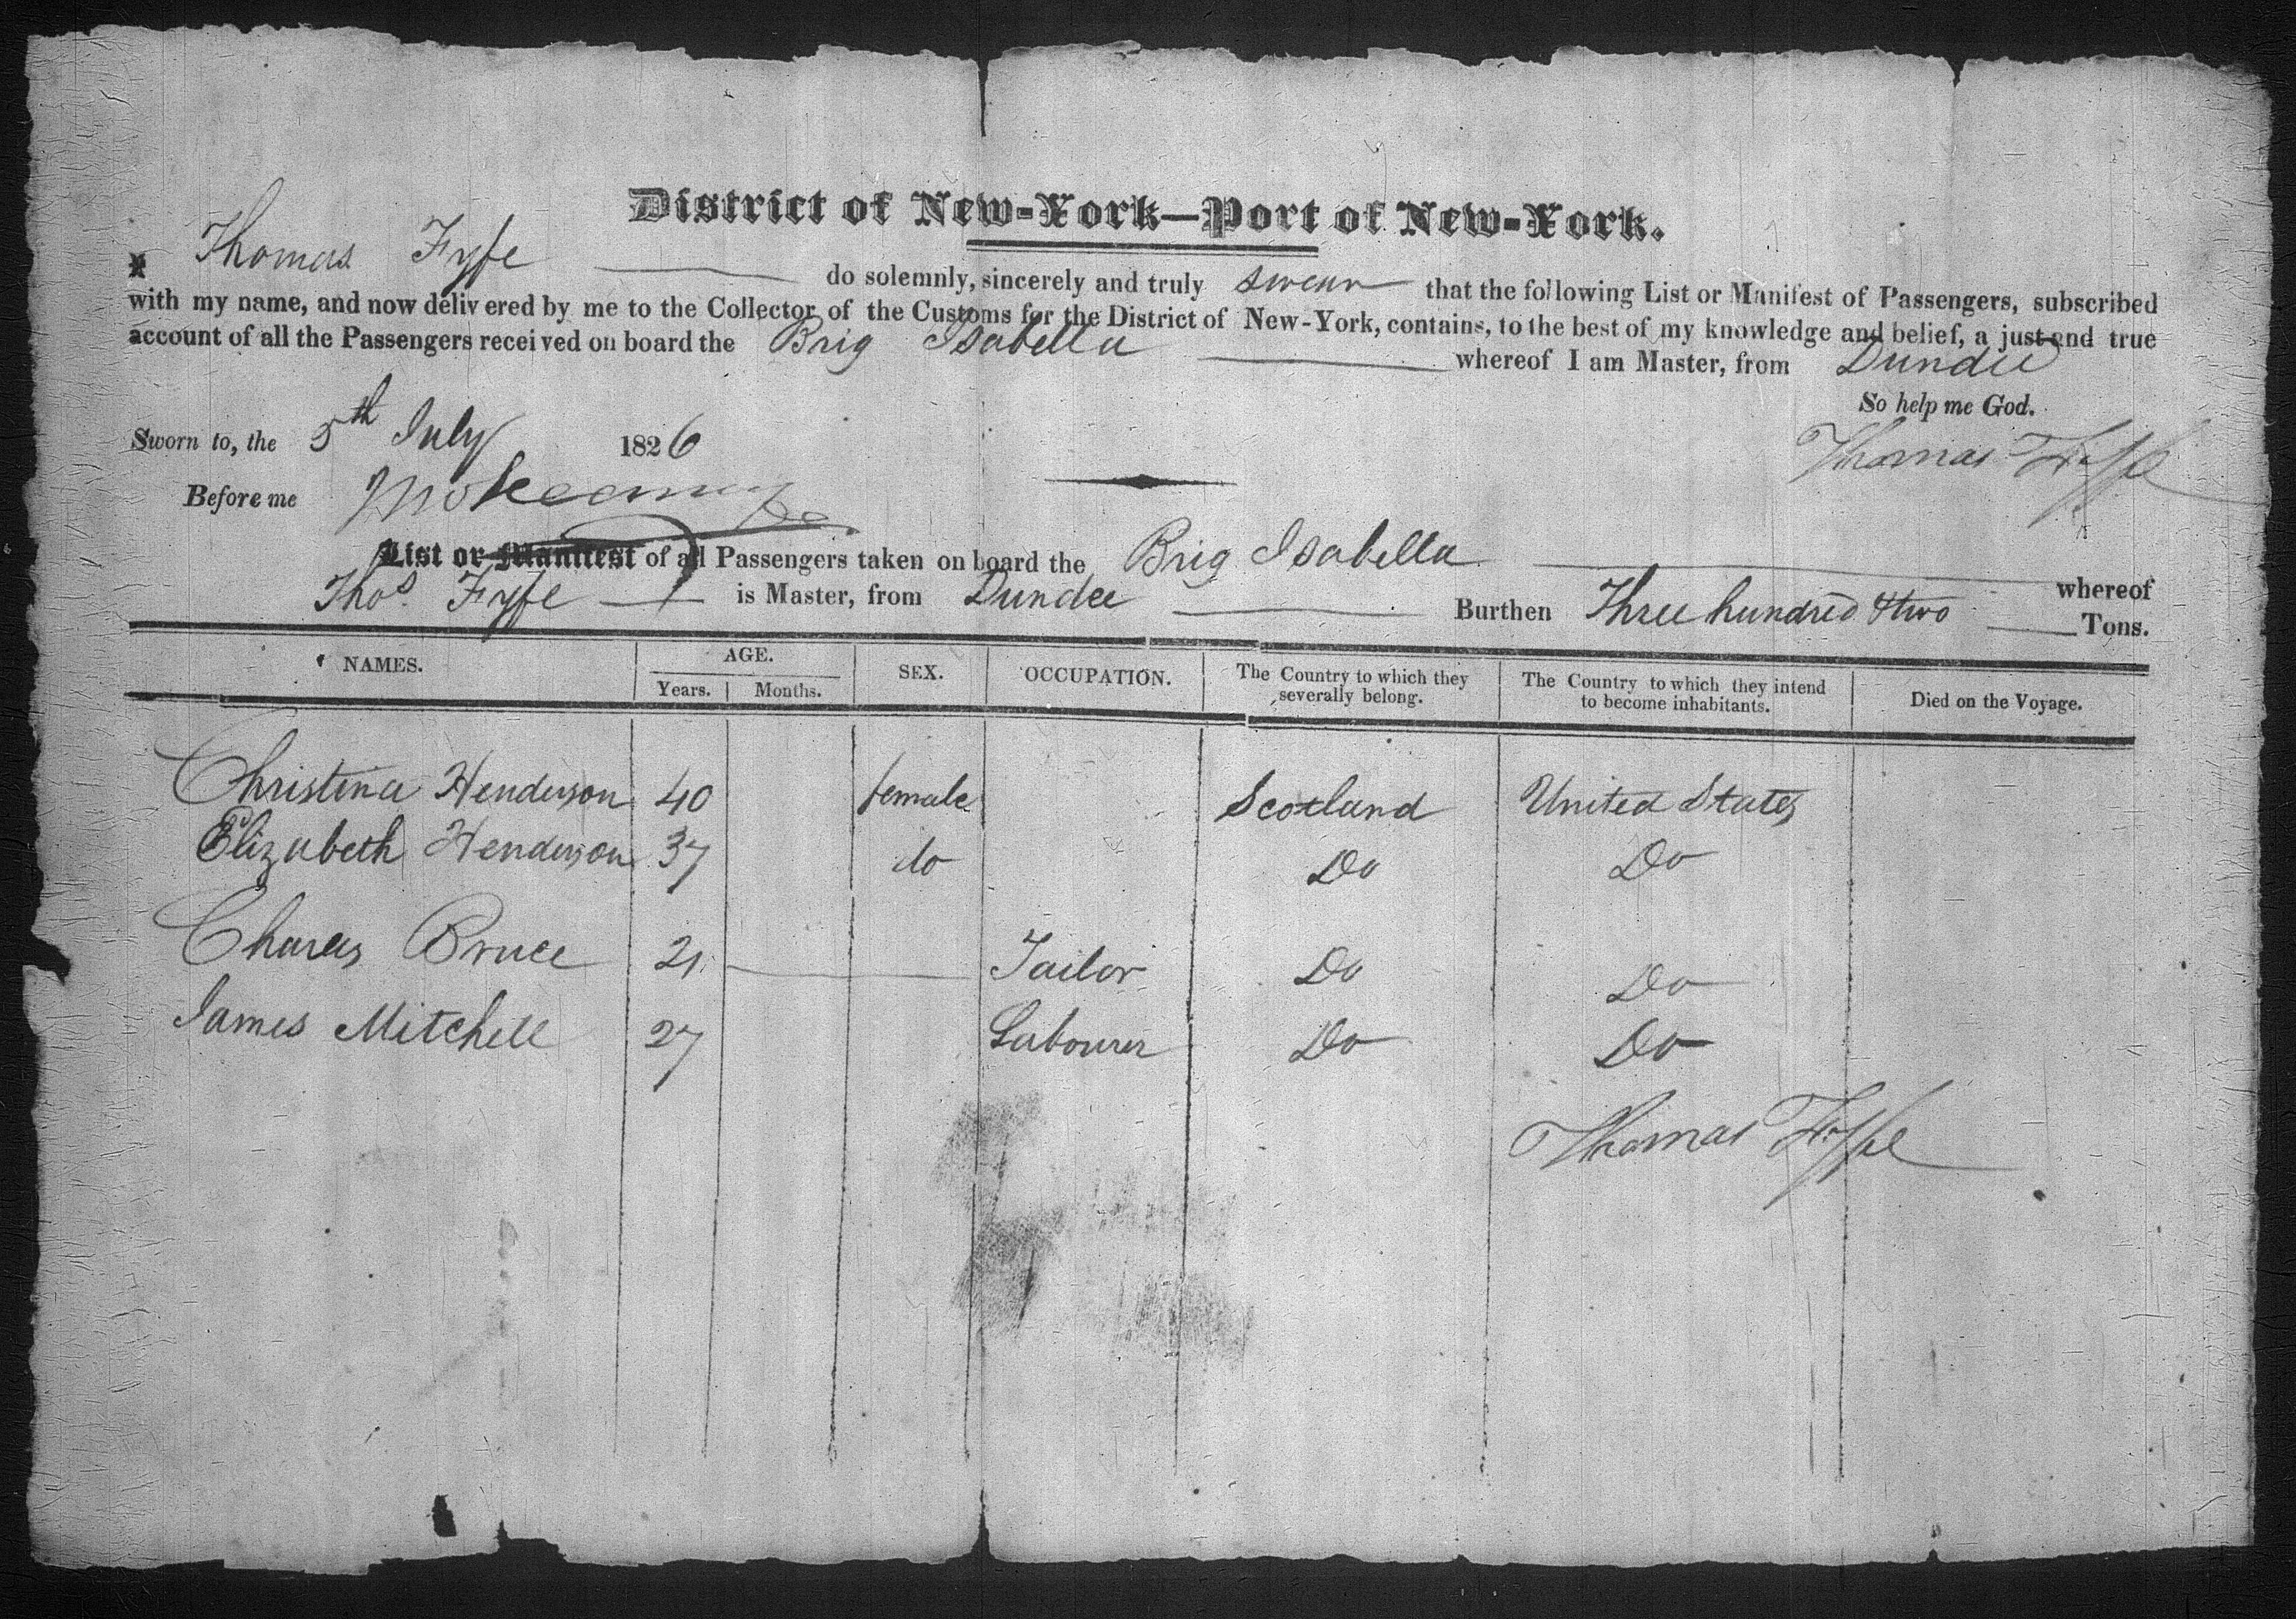 District of New-York—Port of New-York.
I Thomas Fyfe do solemnly, sincerely and truly swear that the following List or Manifest of Passengers, subscribed
with my name, and now delivered by me to the Collector of the Customs for the District of New-York, contains, to the best of my knowledge and belief, a just and true
account of all the Passengers received on board the Brig Isabella whereof I am Master, from Dundee
So help me God.
Sworn to, the 5th July 1826
Thomas Fyfe
Before me
List or Manifest of all Passengers taken on board the Brig Isabella whereof
Thos. Fyfe is Master, from Dundee Burthen Three hundred & two Tons.
NAMES. AGE. SEX. OCCUPATION. The Country to which they severally belong. The Country to which they intend to become inhabitants. Died on the Voyage.
Years. Months.
Christina Henderson 40 female Scotland United States
Elizabeth Henderson 37 do Do Do
Charles Bruce 21 Tailor Do Do
James Mitchell 27 Labourer Do Do
Thomas Fyfe